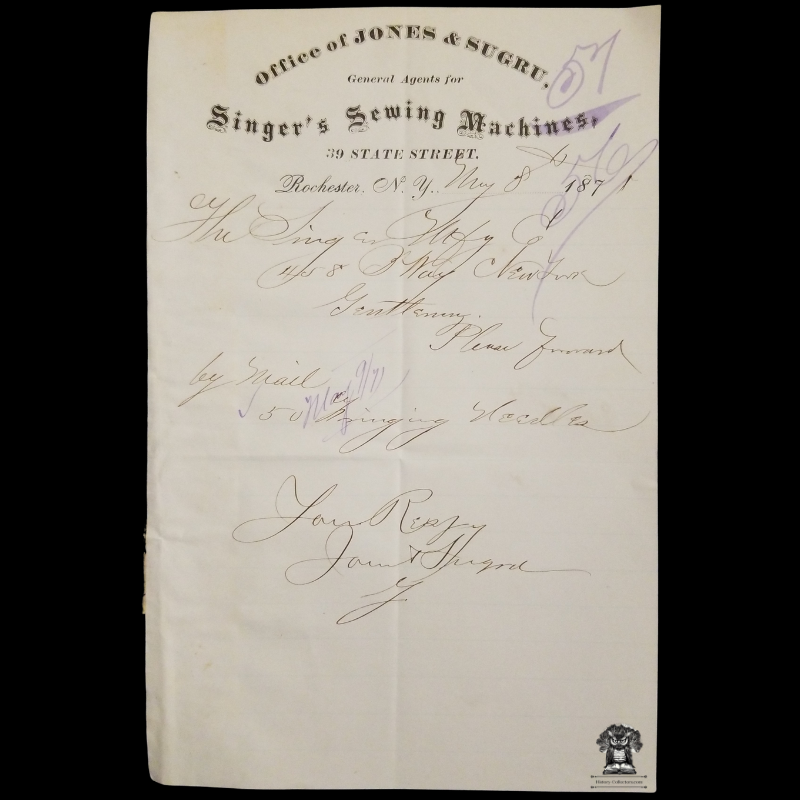 Office of JONES & SUGRU,
General Agents for
Singer's Sewing Machines,
39 STATE STREET.
Rochester, N. Y., May 8th 1871
57
56
The Singer Mfg Co
458 BWay New York
Gentlemen.
Please forward
by Mail
May 9/71
50 Fringing Needles
Your Respy
Jones & Sugru